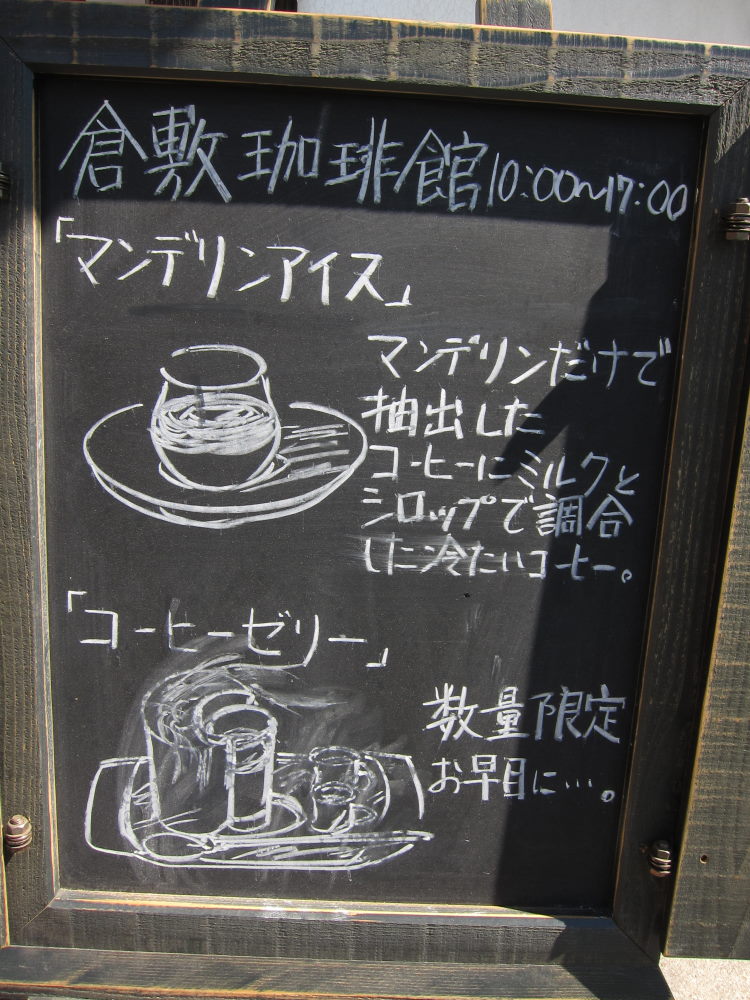 倉敷珈琲館10:00〜17:00
「マンデリンアイス」
マンデリンだけで
抽出した
コーヒーにミルクと
シロップで調合
した冷たいコーヒー。
「コーヒーゼリー」
数量限定
お早目に…。